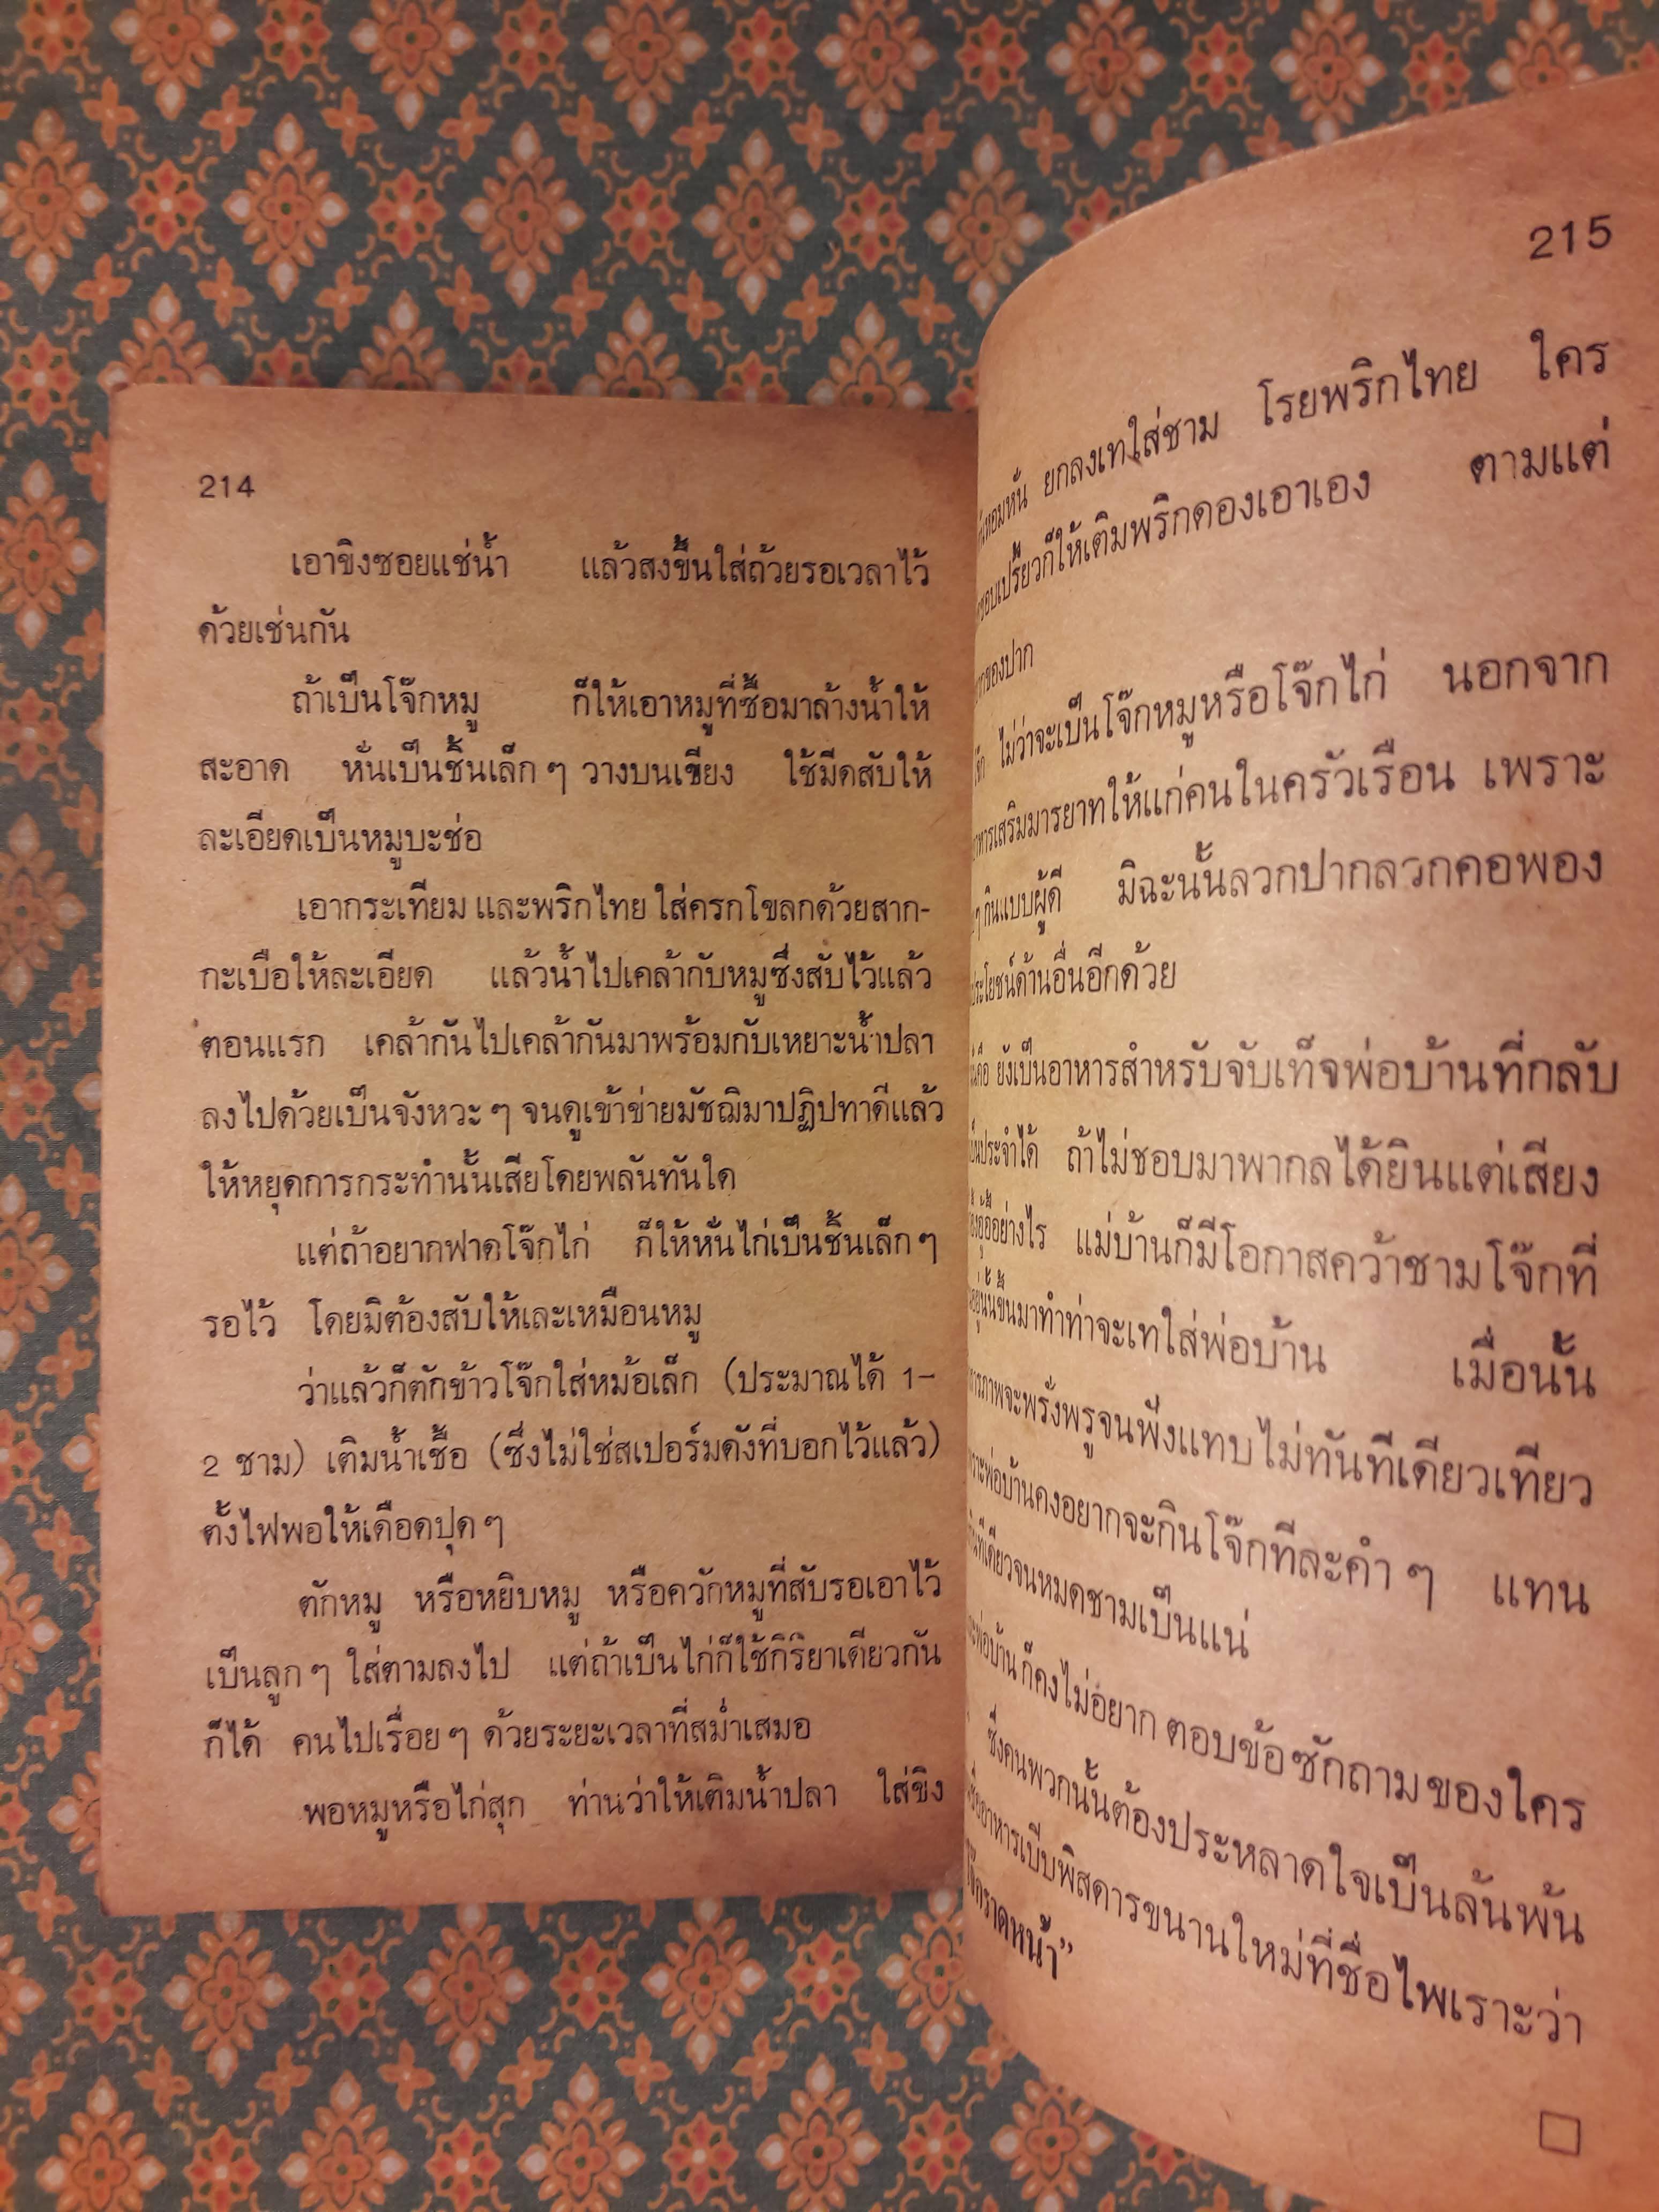 214
เอาขิงซอยแช่น้ำ แล้วสงขึ้นใส่ถ้วยรอเวลาไว้
ด้วยเช่นกัน
ถ้าเป็นโจ๊กหมู ก็ให้เอาหมูที่ซื้อมาล้างน้ำให้
สะอาด หั่นเป็นชิ้นเล็ก ๆ วางบนเขียง ใช้มีดสับให้
ละเอียดเป็นหมูบะช่อ
เอากระเทียม และพริกไทย ใส่ครกโขลกด้วยสาก-
กะเบือให้ละเอียด แล้วน้ำไปเคล้ากับหมูซึ่งสับไว้แล้ว
ตอนแรก เคล้ากันไปเคล้ากันมาพร้อมกับเหยาะน้ำปลา
ลงไปด้วยเป็นจังหวะ ๆ จนดูเข้าข่ายมัชฌิมาปฏิปทาดีแล้ว
ให้หยุดการกระทำนั้นเสียโดยพลันทันใด
แต่ถ้าอยากฟาดโจ๊กไก่ ก็ให้หั่นไก่เป็นชิ้นเล็ก ๆ
รอไว้ โดยมิต้องสับให้เละเหมือนหมู
ว่าแล้วก็ตักข้าวโจ๊กใส่หม้อเล็ก (ประมาณได้ 1-
2 ชาม) เติมน้ำเชื้อ (ซึ่งไม่ใช่สเปอร์มดังที่บอกไว้แล้ว)
ตั้งไฟพอให้เดือดปุด ๆ
ตักหมู หรือหยิบหมู หรือควักหมูที่สับรอเอาไว้
เป็นลูก ๆ ใส่ตามลงไป แต่ถ้าเป็นไก่ก็ใช้กิริยาเดียวกัน
ก็ได้ คนไปเรื่อย ๆ ด้วยระยะเวลาที่สม่ำเสมอ
พอหมูหรือไก่สุก ท่านว่าให้เติมน้ำปลา ใส่ขิง
215
ยกลงเทใส่ชาม โรยพริกไทย ใคร
ชอบเปรี้ยวก็ให้เติมพริกดองเอาเอง ตามแต่
ของปาก
ไม่ว่าจะเป็นโจ๊กหมูหรือโจ๊กไก่ นอกจาก
เสริมมารยาทให้แก่คนในครัวเรือน เพราะ
ๆ กินแบบผู้ดี มิฉะนั้นลวกปากลวกคอพอง
ประโยชน์ด้านอื่นอีกด้วย
ยังเป็นอาหารสำหรับจับเท็จพ่อบ้านที่กลับ
เป็นประจำได้ ถ้าไม่ชอบมาพากลได้ยินแต่เสียง
อย่างไร แม่บ้านก็มีโอกาสคว้าชามโจ๊กที่
ขึ้นมาทำท่าจะเทใส่พ่อบ้าน เมื่อนั้น
จะพรั่งพรูจนฟังแทบไม่ทันทีเดียวเทียว
พ่อบ้านคงอยากจะกินโจ๊กทีละคำ ๆ แทน
ทีเดียวจนหมดชามเป็นแน่
พ่อบ้าน ก็คงไม่อยาก ตอบข้อซักถามของใคร
ซึ่งคนพวกนั้นต้องประหลาดใจเป็นล้นพ้น
อาหารเบ็บพิสดารขนานใหม่ที่ชื่อไพเราะว่า
ราดหน้า”